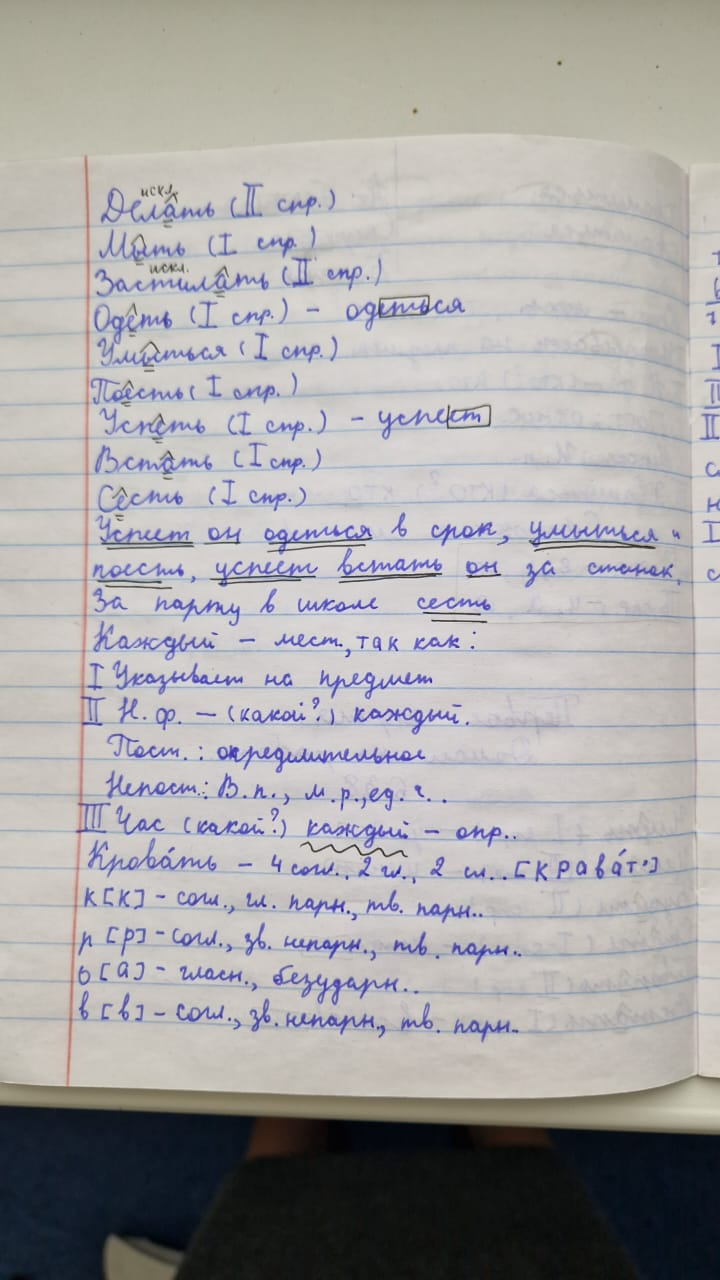 искл.
Делать (II спр.)
Мыть (I спр.)
искл.
Застилать (II спр.)
Одеть (I спр.) – одеться
Умыться (I спр.)
Поесть (I спр.)
Успеть (I спр.) – успеет
Встать (I спр.)
Сесть (I спр.)
Успеет он одеться в срок, умыться и
поесть, успеет встать он за станок,
За парту в школе сесть
Каждый – мест., так как:
I Указывает на предмет
II Н. ф. – (какой?) каждый.
Пост.: определительное
Непост.: В.п., м.р., ед.ч..
III Час (какой?) каждый – опр..
Крова́ть – 4 согл., 2 гл., 2 сл.. [крава́т']
к [к] – согл., гл. парн., тв. парн..
р [р] – согл., зв. непарн., тв. парн..
о [а] – гласн., безударн..
в [в] – согл., зв. непарн., тв. парн..